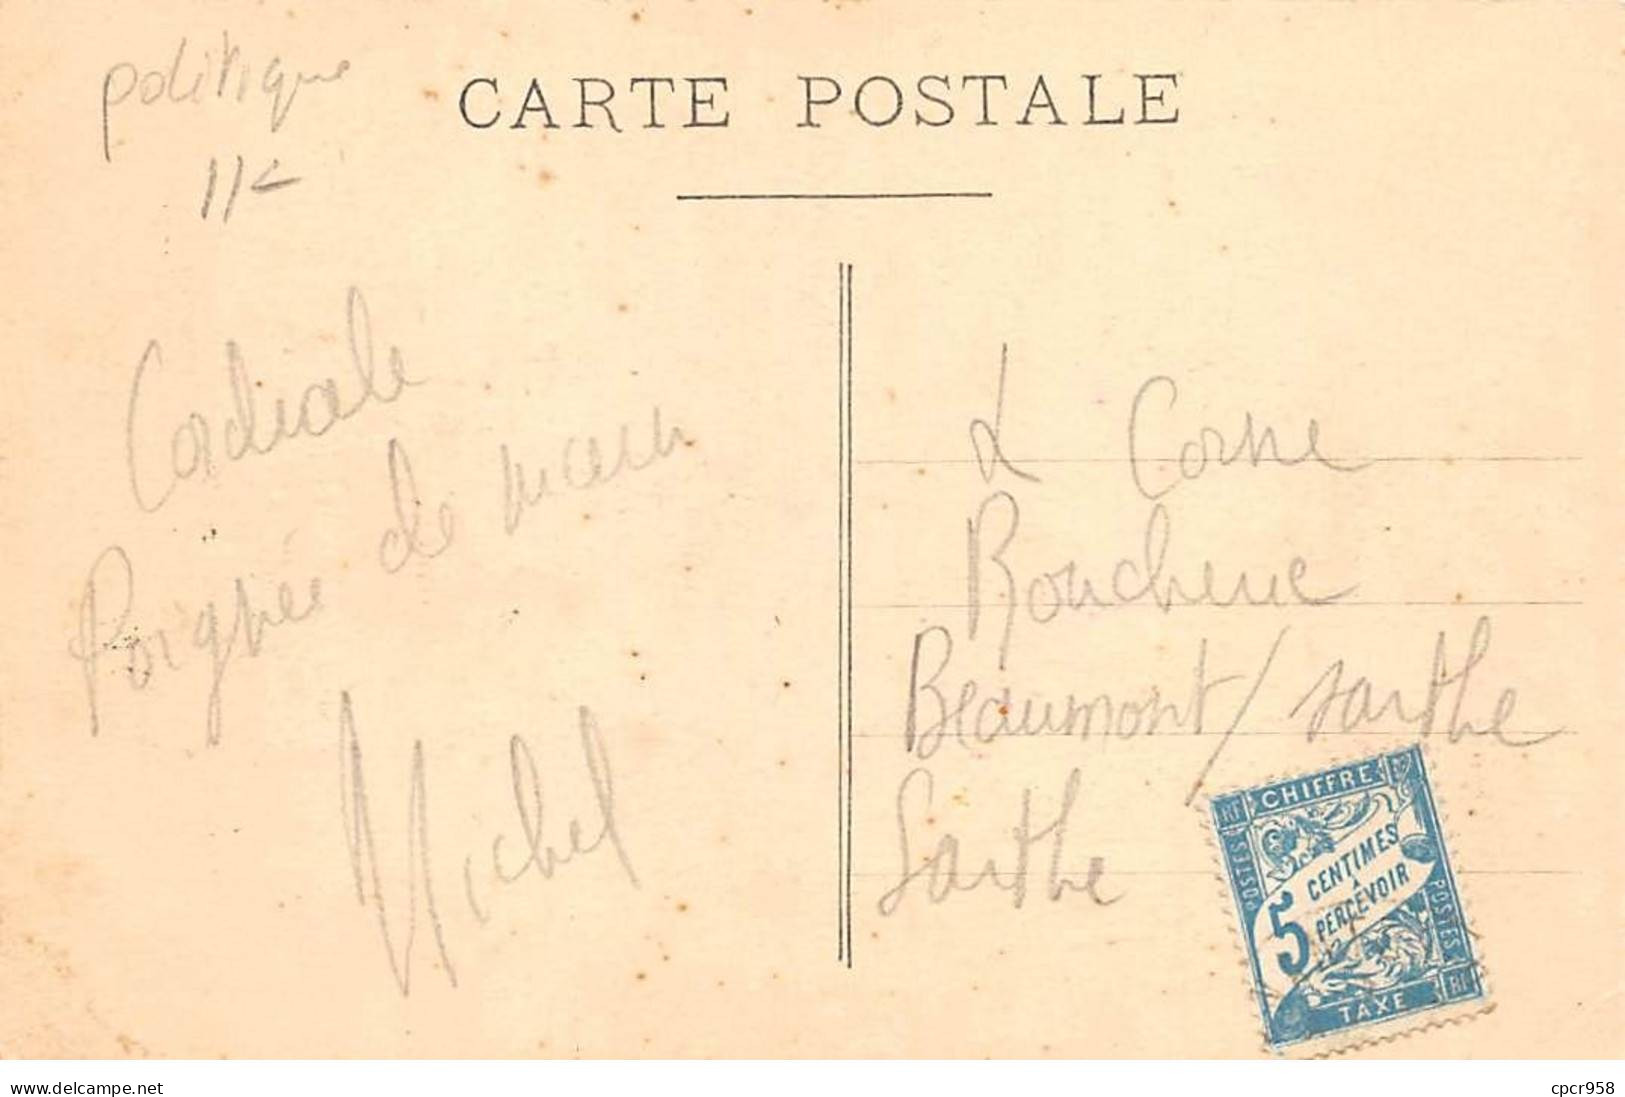 politique
CARTE POSTALE
Cordiale
Poignée de main
Michel
Corne
Boucherie
Beaumont / Sarthe
Sarthe
RF CHIFFRE
POSTES
5 CENTIMES
A
PERCEVOIR
POSTES
TAXE RF
delcampe.net
cpcr958